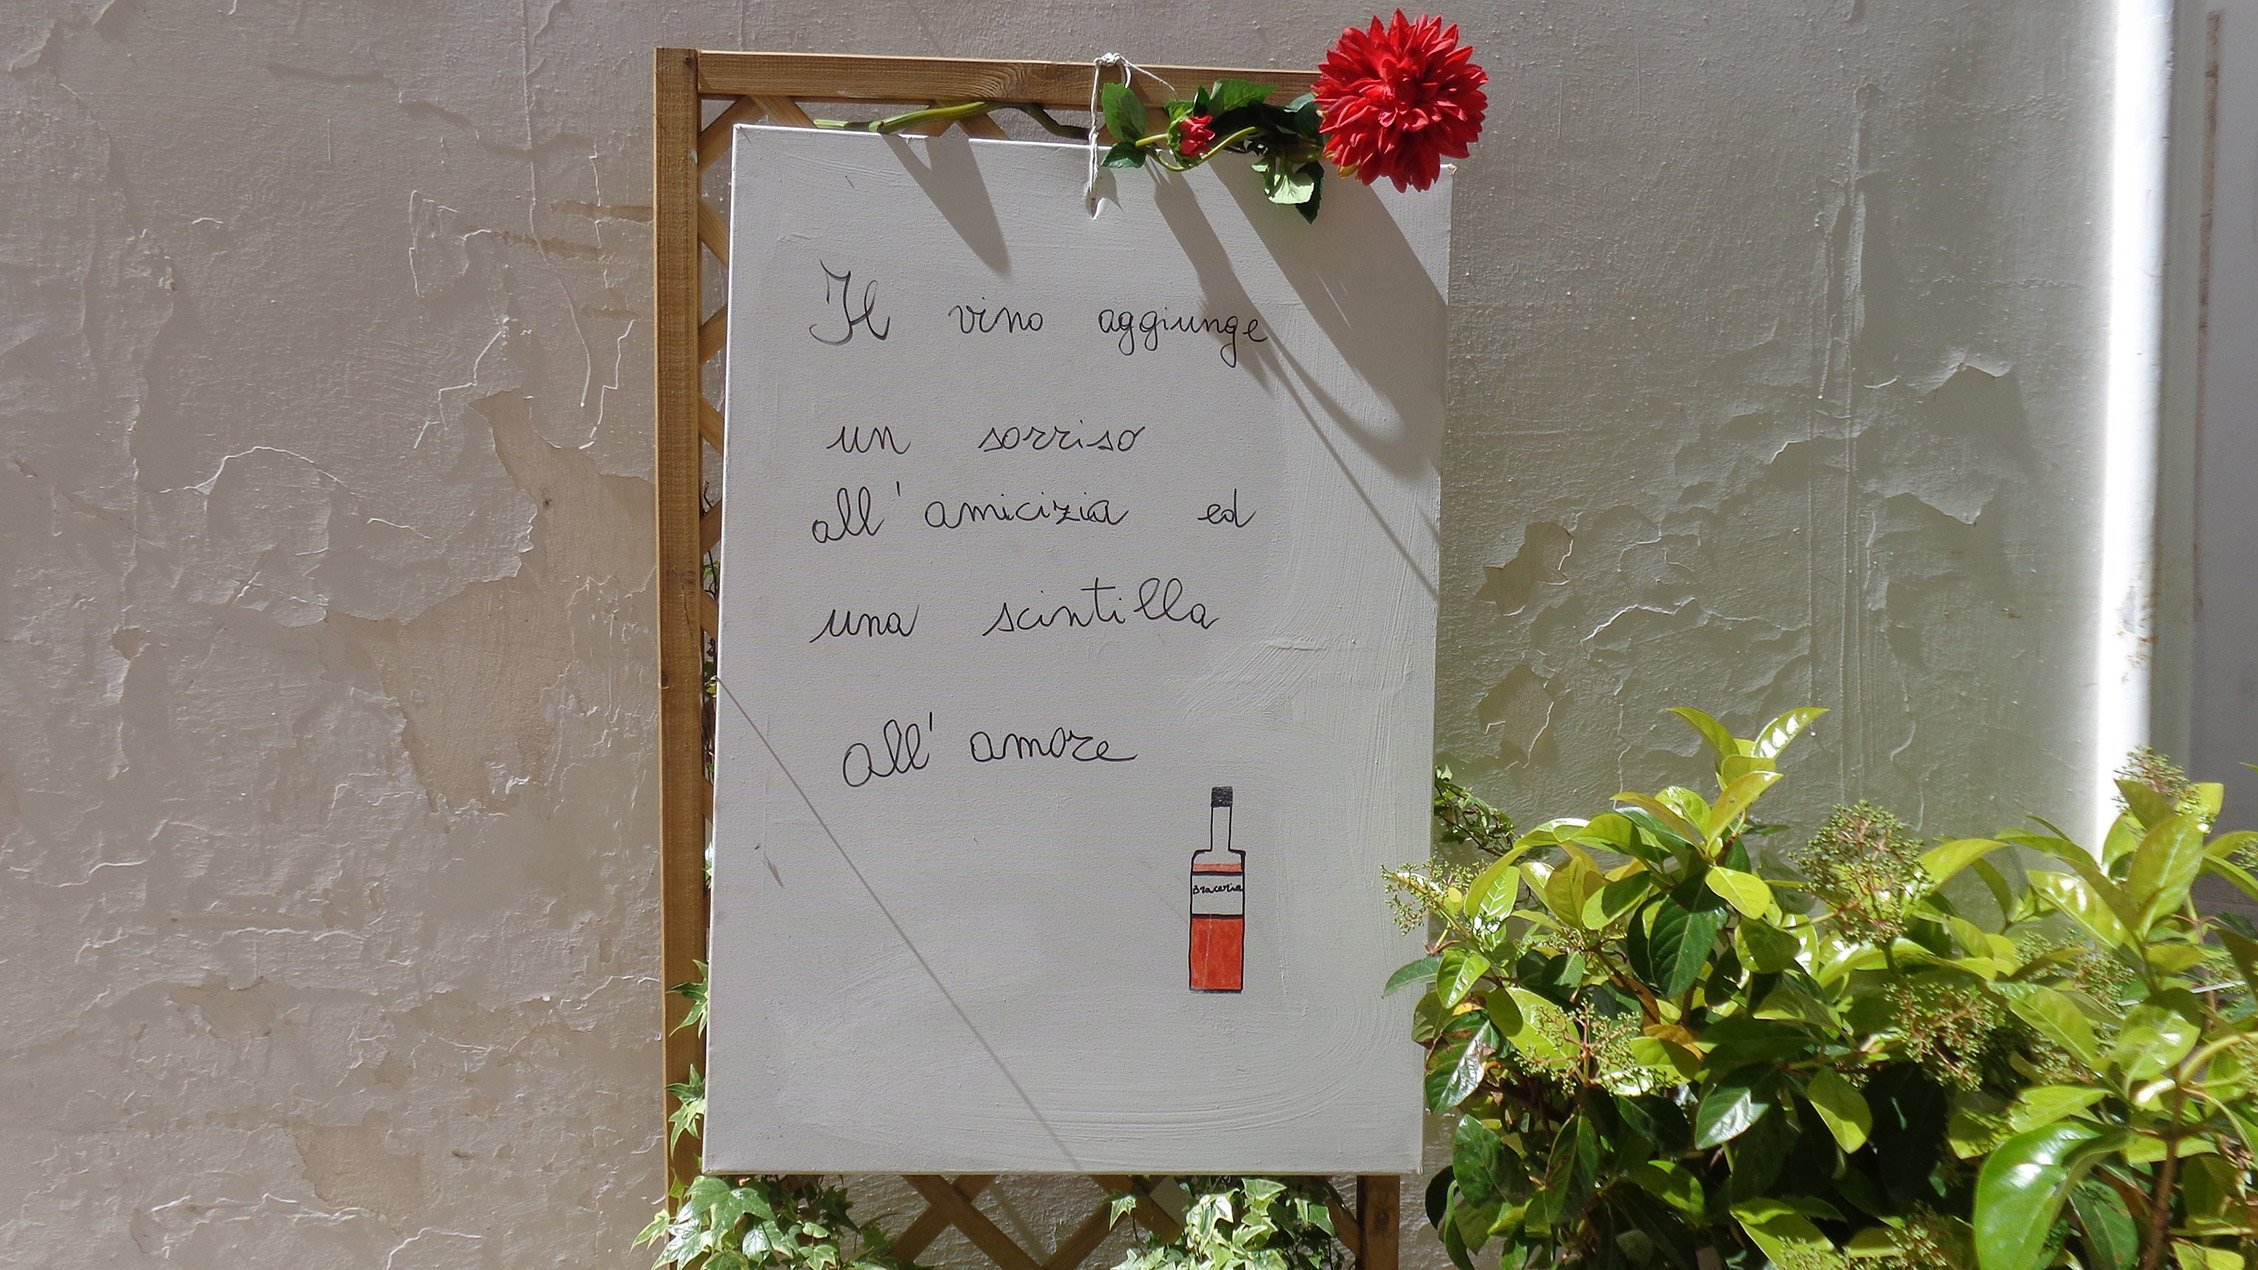 Il vino aggiunge
un sorriso
all'amicizia ed
una scintilla
all'amore
Braceria